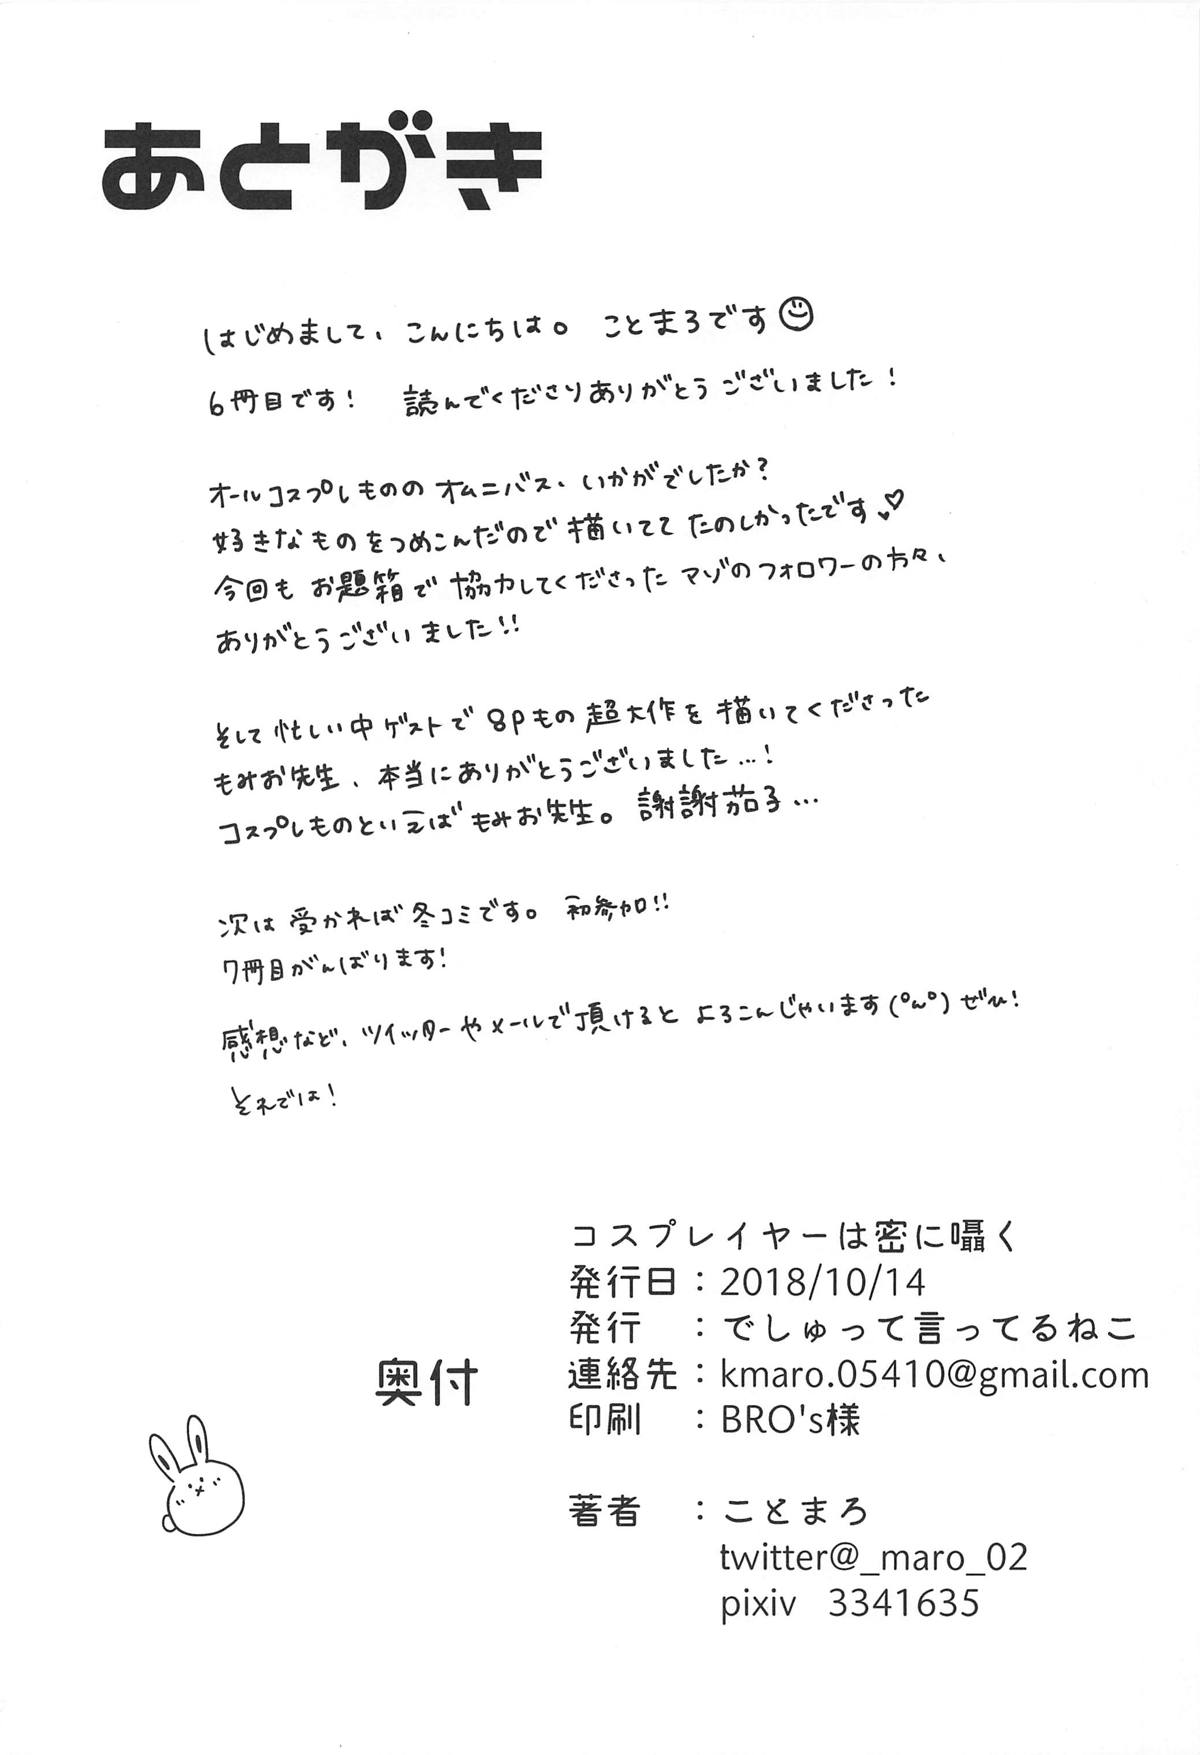 あとがき
はじめまして、こんにちは。 ことまろです
6冊目です! 読んでくださりありがとうございました!
オールコスプレもののオムニバス、いかがでしたか?
好きなものをつめこんだので描いてて たのしかったです♡
今回も お題箱で 協力してくださった マゾのフォロワーの方々、
ありがとうございました!!
そして忙しい中 ゲストで 8Pもの 超大作を 描いてくださった
もみお先生、本当にありがとうございました…!
コスプレものといえば もみお先生。 謝謝茄子…
次は 受かれば 冬コミです。 初参加!!
7冊目がんばります!
感想など、ツイッターやメールで頂けると よろこんじゃいます(°ﾊ°) ぜひ!
それでは!
コスプレイヤーは密に囁く
発行日:2018/10/14
発行 :でしゅって言ってるねこ
奥付
連絡先:kmaro.05410@gmail.com
印刷 :BRO's様
著者 :ことまろ
twitter@_maro_02
pixiv 3341635